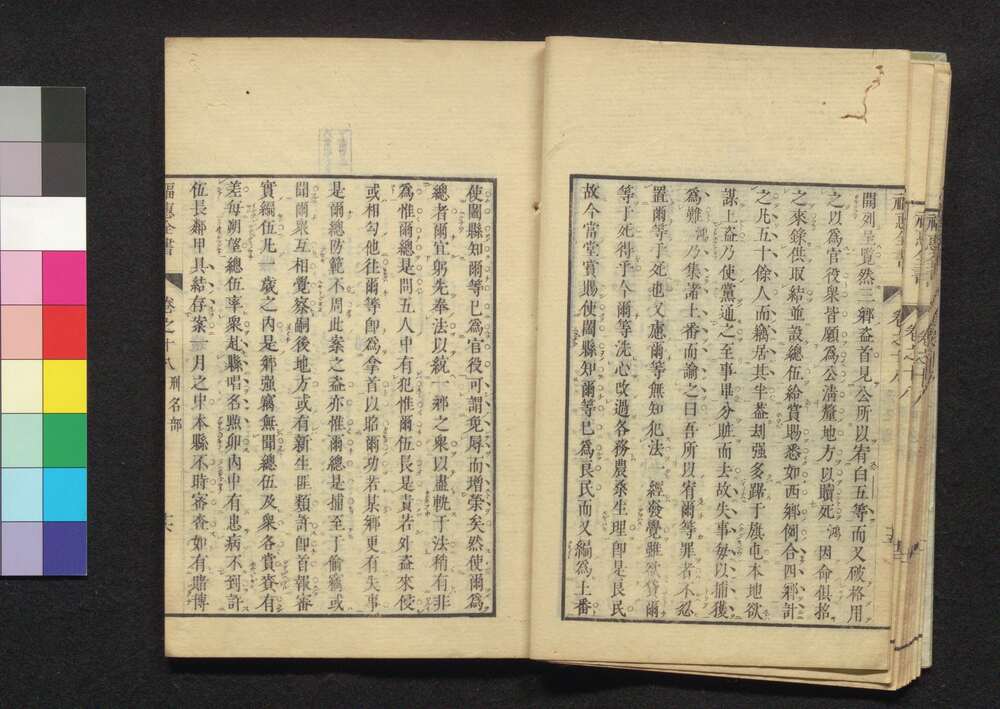 開列呈覽然三鄉盜首見公所以宥白五等而又破格用
之以爲官役衆皆願爲公淸釐地方以贖死鴻因命俱招
之來錄供取結並設總伍給賞賜悉如西鄉例合四鄉計
之凡五十餘人而竊居其半葢刼强多躧于旗屯本地欲
謀上盜乃使黨通之至事畢分賍而去故失事每以捕獲
爲難鴻乃集諸上番而諭之曰吾所以宥爾等罪者不忍
置爾等于死也又慮爾等無知犯法一經發覺雖欲貸爾
等于死得乎今爾等洗心改過各務農桑生理卽是良民
故今當堂賞賜使闔縣知爾等已爲良民而又編爲上番
使闔縣知爾等已爲官役可謂免辱而增榮矣然使爾爲
總者爾宜躬先奉法以統一鄉之衆以盡軌于法稍有非
爲惟爾總是問五人中有犯惟爾伍長是責若外盜來侵
或相勾他往爾等卽爲拿首以賂爾功若某鄉更有失事
是爾總防範不周此案之盜亦惟爾總是捕至于偷竊或
聞爾衆互相覺察嗣後地方或有新生匪類許卽首報審
實編伍凡一歲之內是鄉强竊無聞總伍及衆各賞賚有
差每朔望總伍率衆赴縣唱名點卯內中有患病不到許
伍長鄰甲具結存案一月之中本縣不時審查如有賭博
福惠全書
卷之十八
刑名部